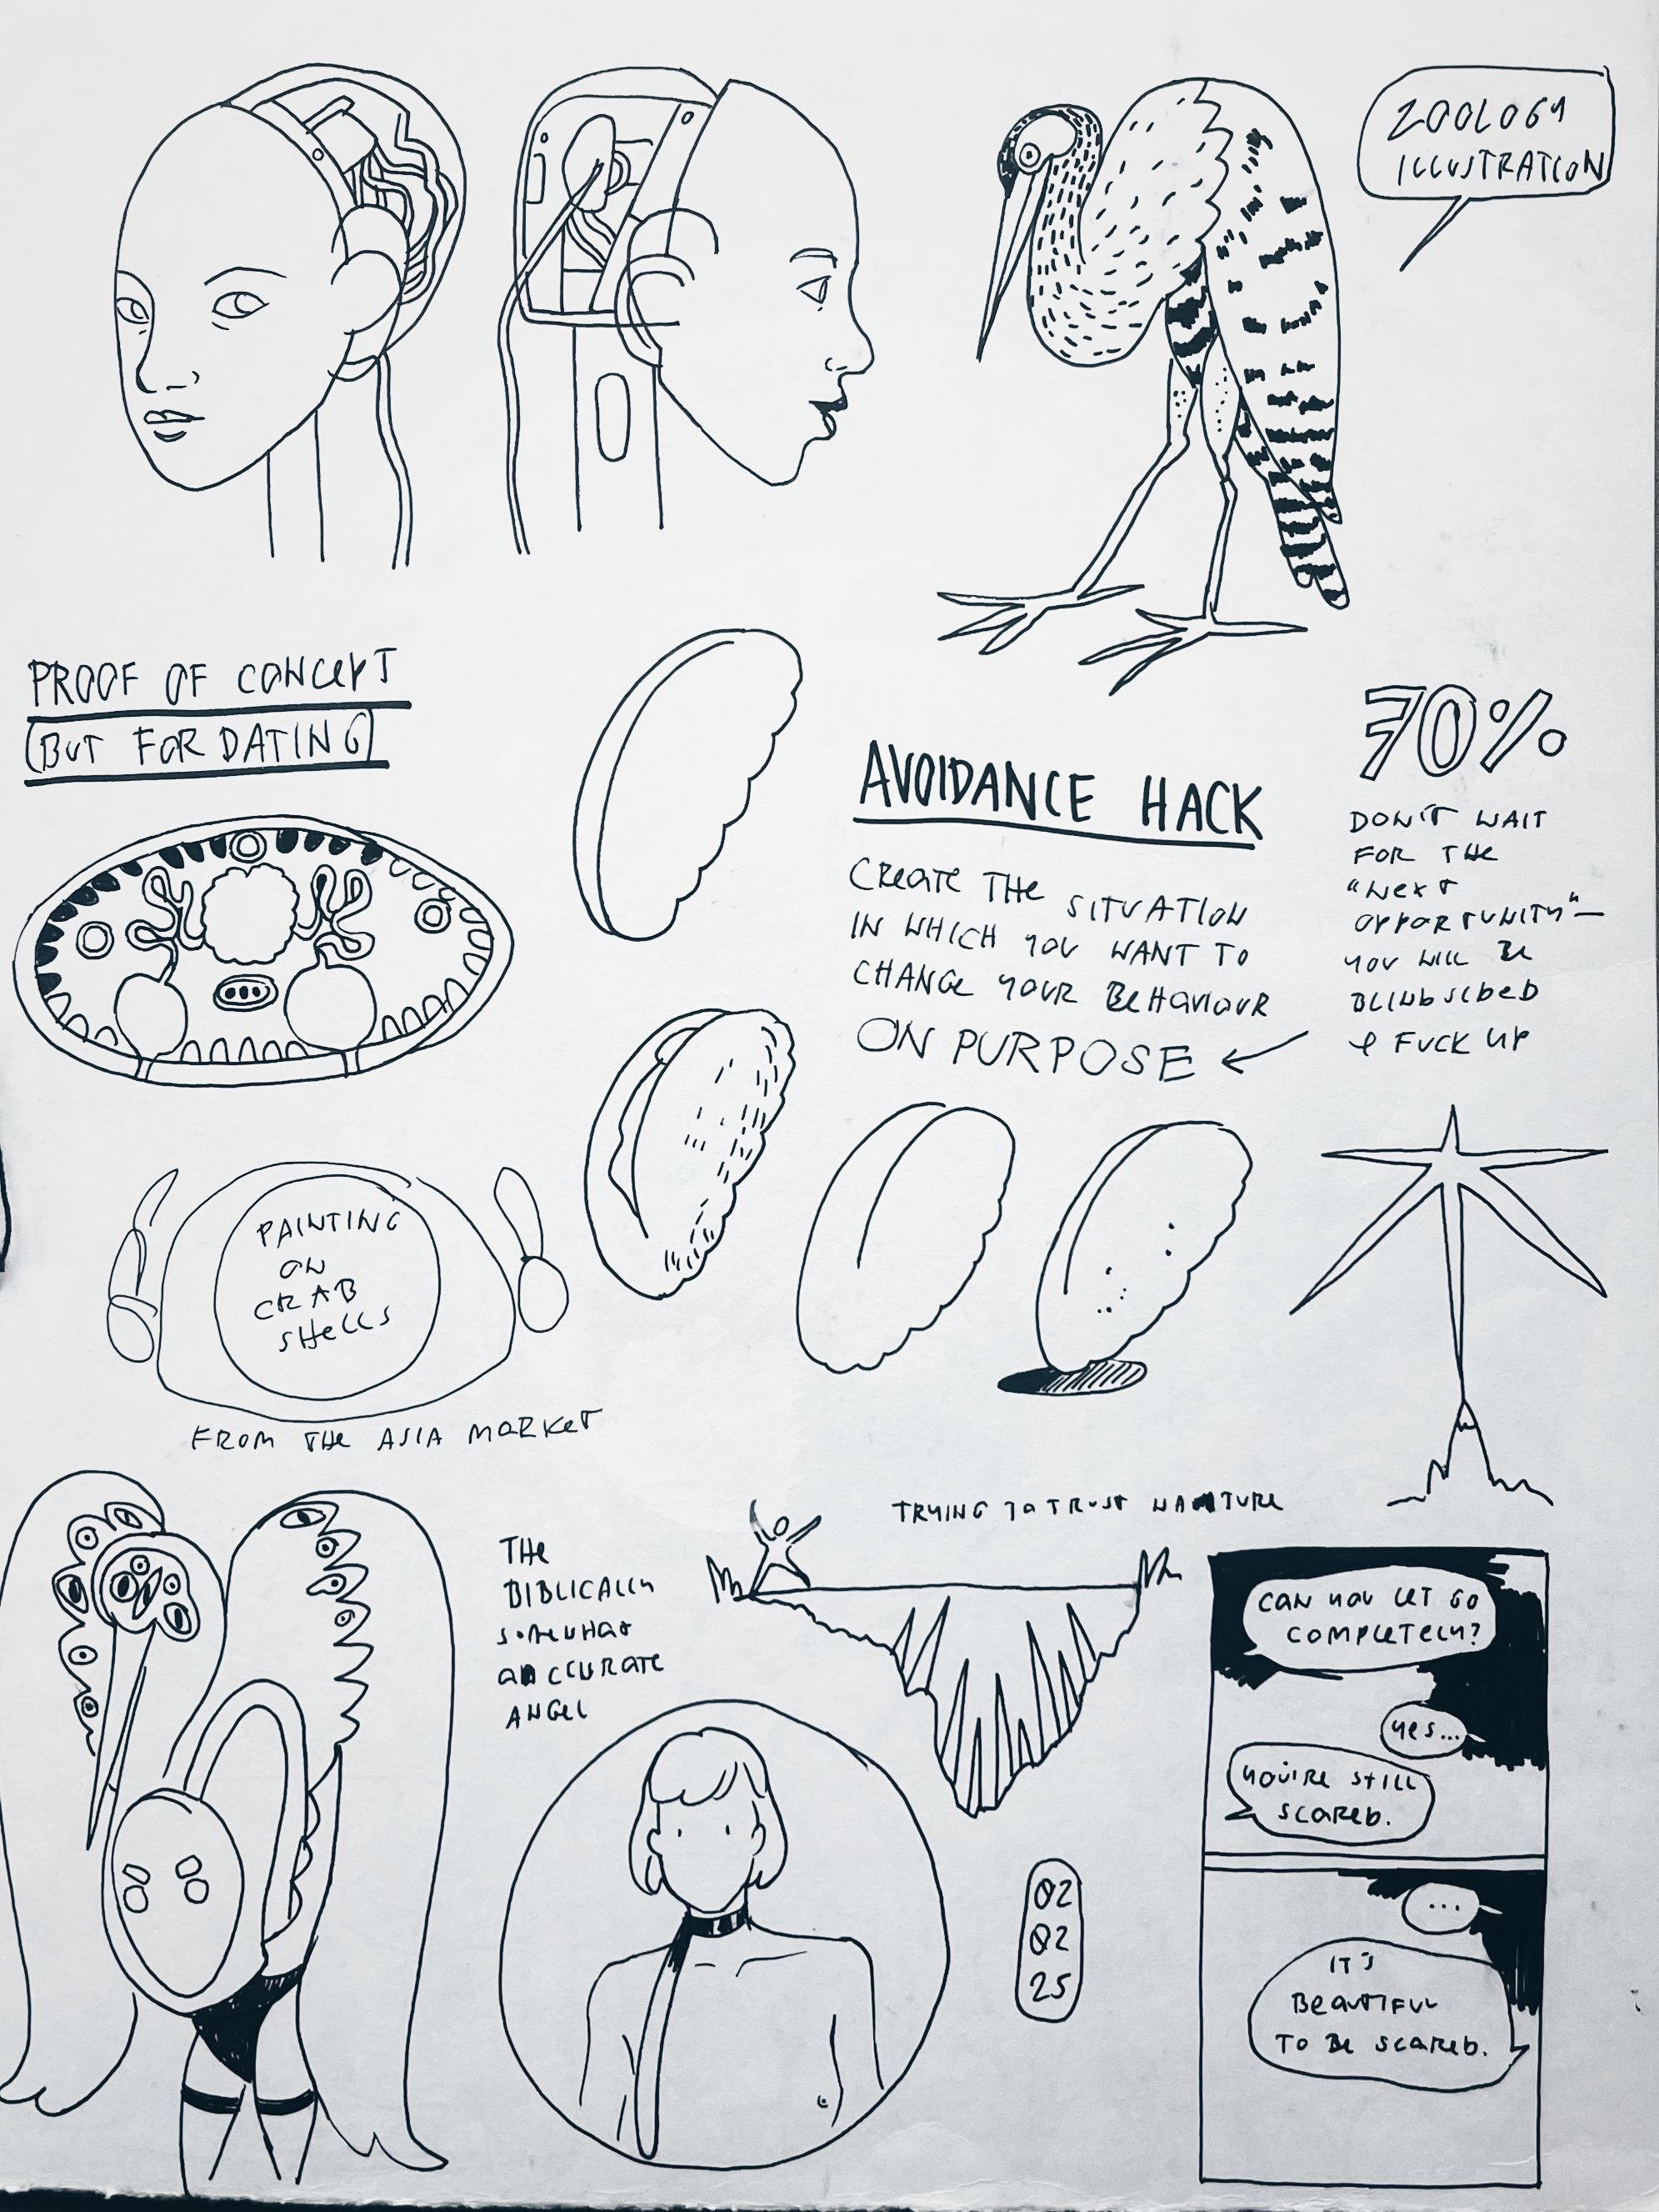 ZOOLOGY
ILLUSTRATION
PROOF OF CONCEPT
(BUT FOR DATING)
70%
AVOIDANCE HACK
CREATE THE SITUATION
IN WHICH YOU WANT TO
CHANGE YOUR BEHAVIOUR
ON PURPOSE
DON'T WAIT
FOR THE
"NEXT
OPPORTUNITY"—
YOU WILL BE
BLINDSIDED
& FUCK UP
PAINTING
ON
CRAB
SHELLS
FROM THE ASIA MARKET
THE
BIBLICALLY
SOMEWHAT
ACCURATE
ANGEL
TRYING TO TRUST NATURE
CAN YOU LET GO
COMPLETELY?
YES...
YOU'RE STILL
SCARED.
...
IT'S
BEAUTIFUL
TO BE SCARED.
02
02
25